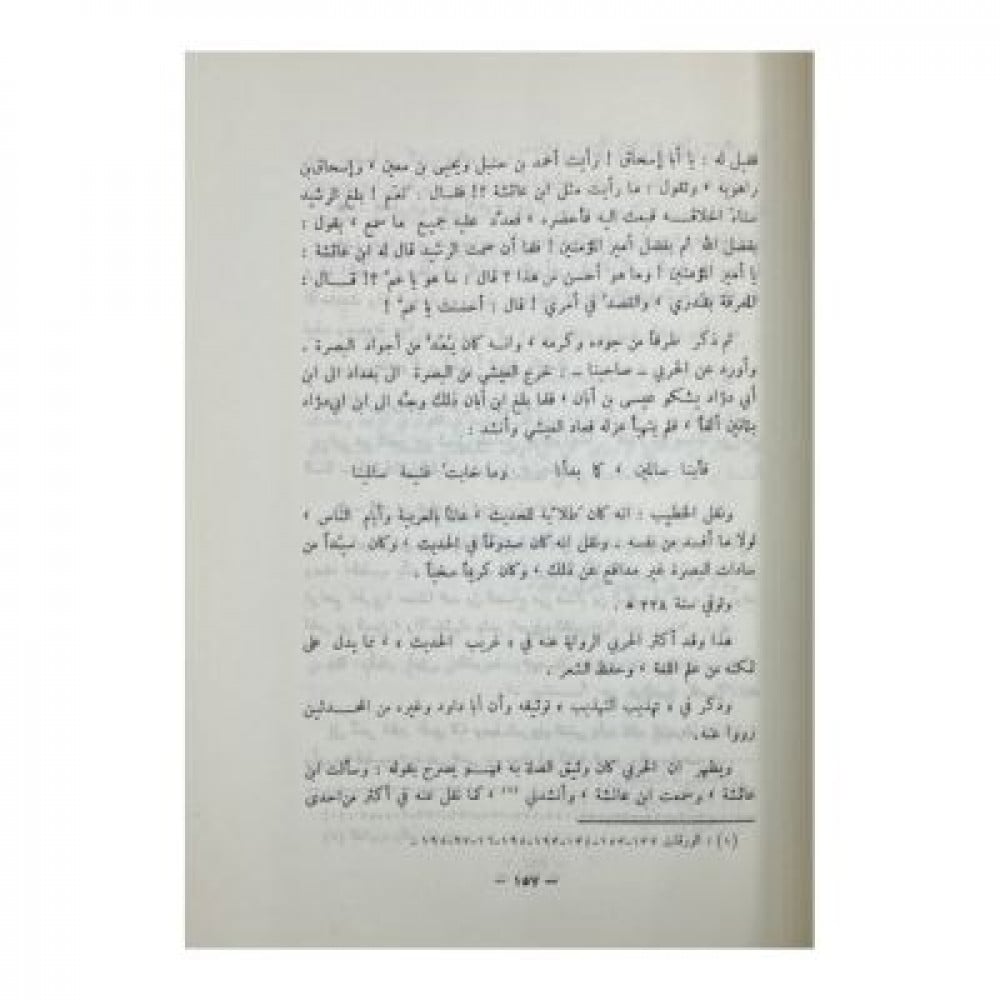 فقيل له : يا أبا إسحاق ! رأيت أحمد بن حنبل ويحيى بن معين ، وإسحاق بن
راهويه ، وتقول : ما رأيت مثل ابن عائشة ؟! فقال : نعم ! بلغ الرشيد
سناء أخلاقه فبعث اليه فأحضره ، فعدّد عليه جميع ما سمع ، يقول :
بفضل الله ثم بفضل أمير المؤمنين ! فلما أن صمت الرشيد قال له ابن عائشة :
يا أمير المؤمنين ! وما هو أحسن من هذا ؟ قال : ما هو يا عم ؟! قال :
المعرفة بقدري ، والقصد في أمري ! قال : أحسنت يا عم !
ثم ذكر طرفاً من جوده وكرمه ، وانه كان يُعدّ من أجواد البصرة .
وأورد عن الحربي - صاحبنا - : خرج العيشي من البصرة الى بغداد الى ابن
أبي دؤاد يشكو عيسى بن أبان ، فلما بلغ ابن أبان ذلك وجّه الى ابن ابي دؤاد
ألفاً ، فلم يتهيأ عزله فعاد العيشي وأنشد :
فأبنا سالمين ، كما بدأنا وما خابت غنيمة سالمينا
ونقل الخطيب : انه كان طلابة للحديث ، عالماً بالعربية وأيام الناس ،
لولا ما أفسد من نفسه . ونقل انه كان صدوقاً في الحديث ، وكان سيّداً من
سادات البصرة غير مدافع عن ذلك ، وكان كريماً سخياً .
وتوفي سنة ٢٢٨ ه .
هذا وقد أكثر الحربي الرواية عنه في « غريب الحديث » ، مما يدل على
تمكنه من علم اللغة ، وحفظ الشعر .
وذكر في « تهذيب التهذيب » توثيقه وأن أبا داود وغيره من المحدثين
رووا عنه .
ويظهر ان الحربي كان وثيق الصلة به فهو يصرح بقوله : وسألت ابن
عائشة ، وسمعت ابن عائشة ، وأنشدني (١) ، كما نقل عنه في أكثر من احدى
(١) : الورقات
- ١٥٧ -